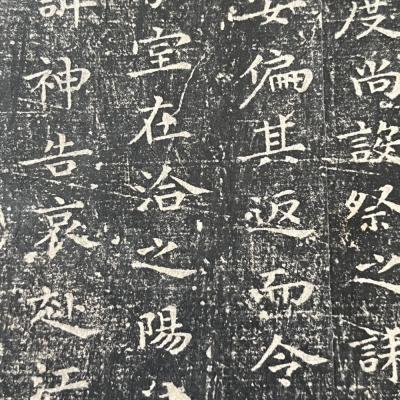 度尚設祭之誄
偏其返而令
室在洽之陽
神告哀赴江